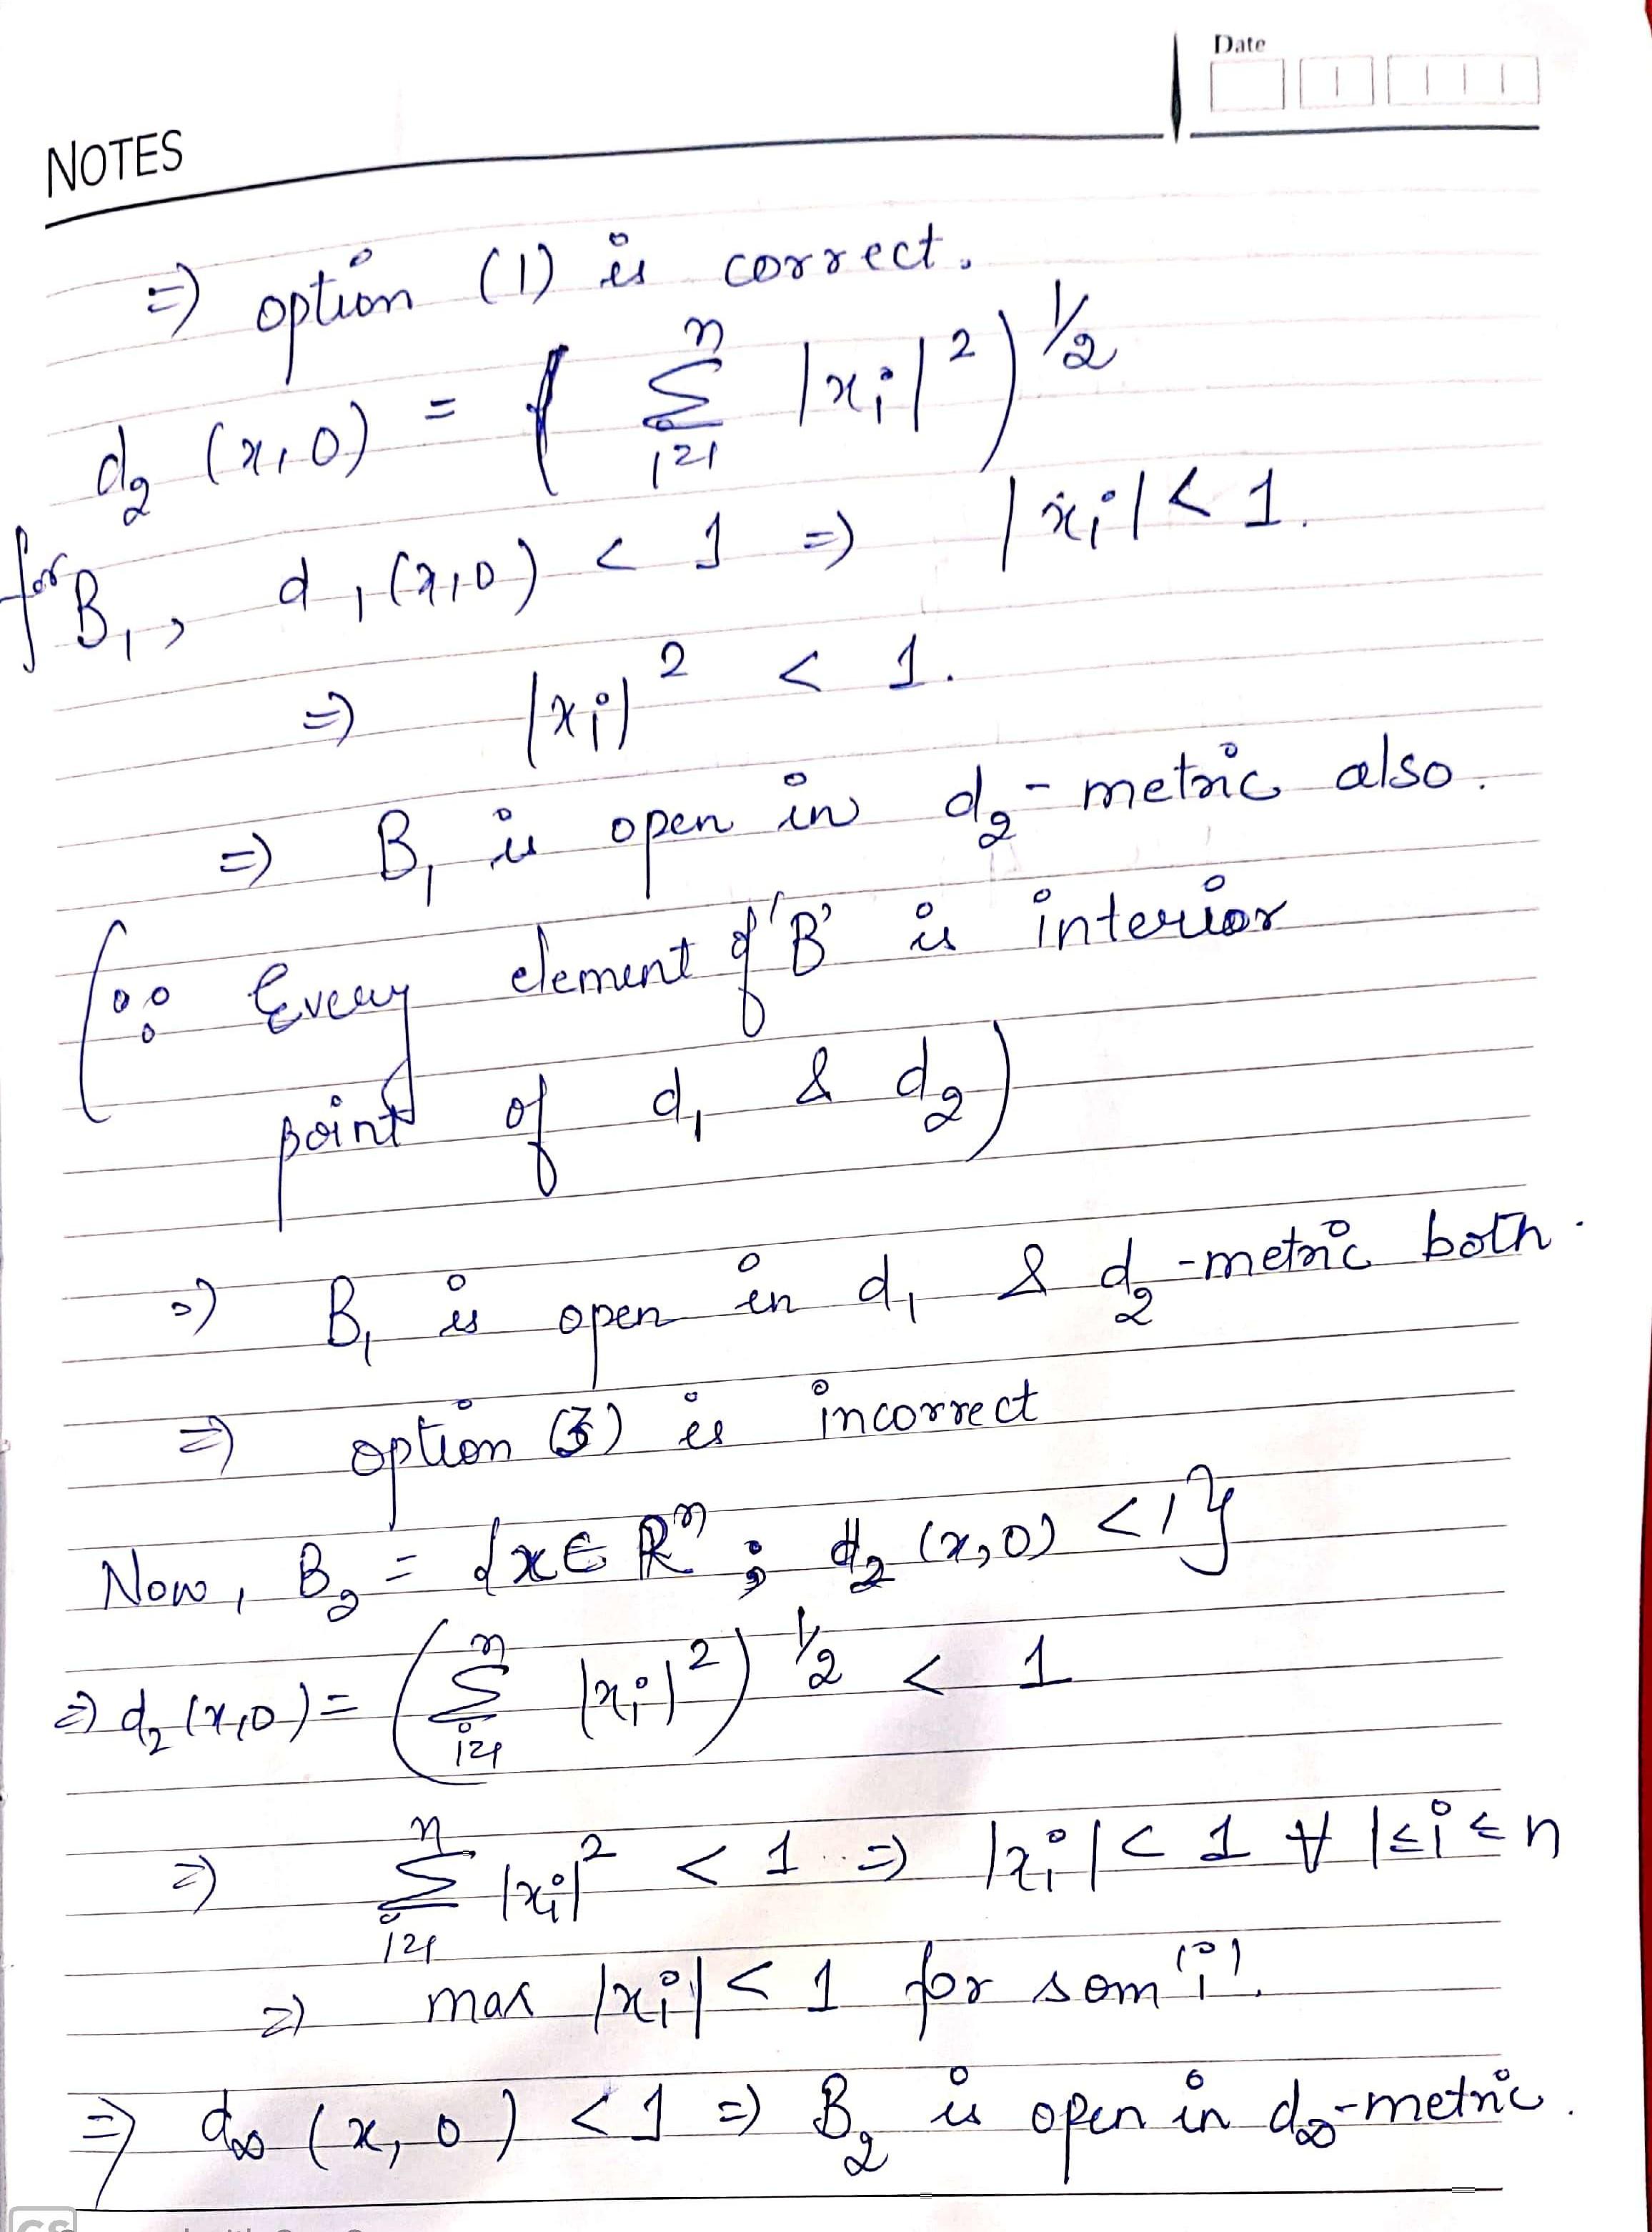 Date
NOTES
⇒ option (1) is correct.
d₂ (x,0) = ( n Σ i=1 |xᵢ|² )^1/2
for B₁, d₁(x,0) < 1 ⇒ |xᵢ| < 1.
⇒ |xᵢ|² < 1.
⇒ B₁ is open in d₂-metric also.
(∵ Every element of 'B' is interior
point of d₁ & d₂)
⇒ B₁ is open in d₁ & d₂-metric both.
⇒ option (3) is incorrect
Now, B₂ = {x ∈ ℝⁿ ; d₂ (x,0) < 1}
⇒ d₂ (x,0) = ( n Σ i=1 |xᵢ|² )^1/2 < 1
⇒ n Σ i=1 |xᵢ|² < 1 ⇒ |xᵢ| < 1 ∀ 1≤i≤n
⇒ max |xᵢ| < 1 for som 'i'.
⇒ d∞ (x, 0) < 1 ⇒ B₂ is open in d∞-metric.
CS